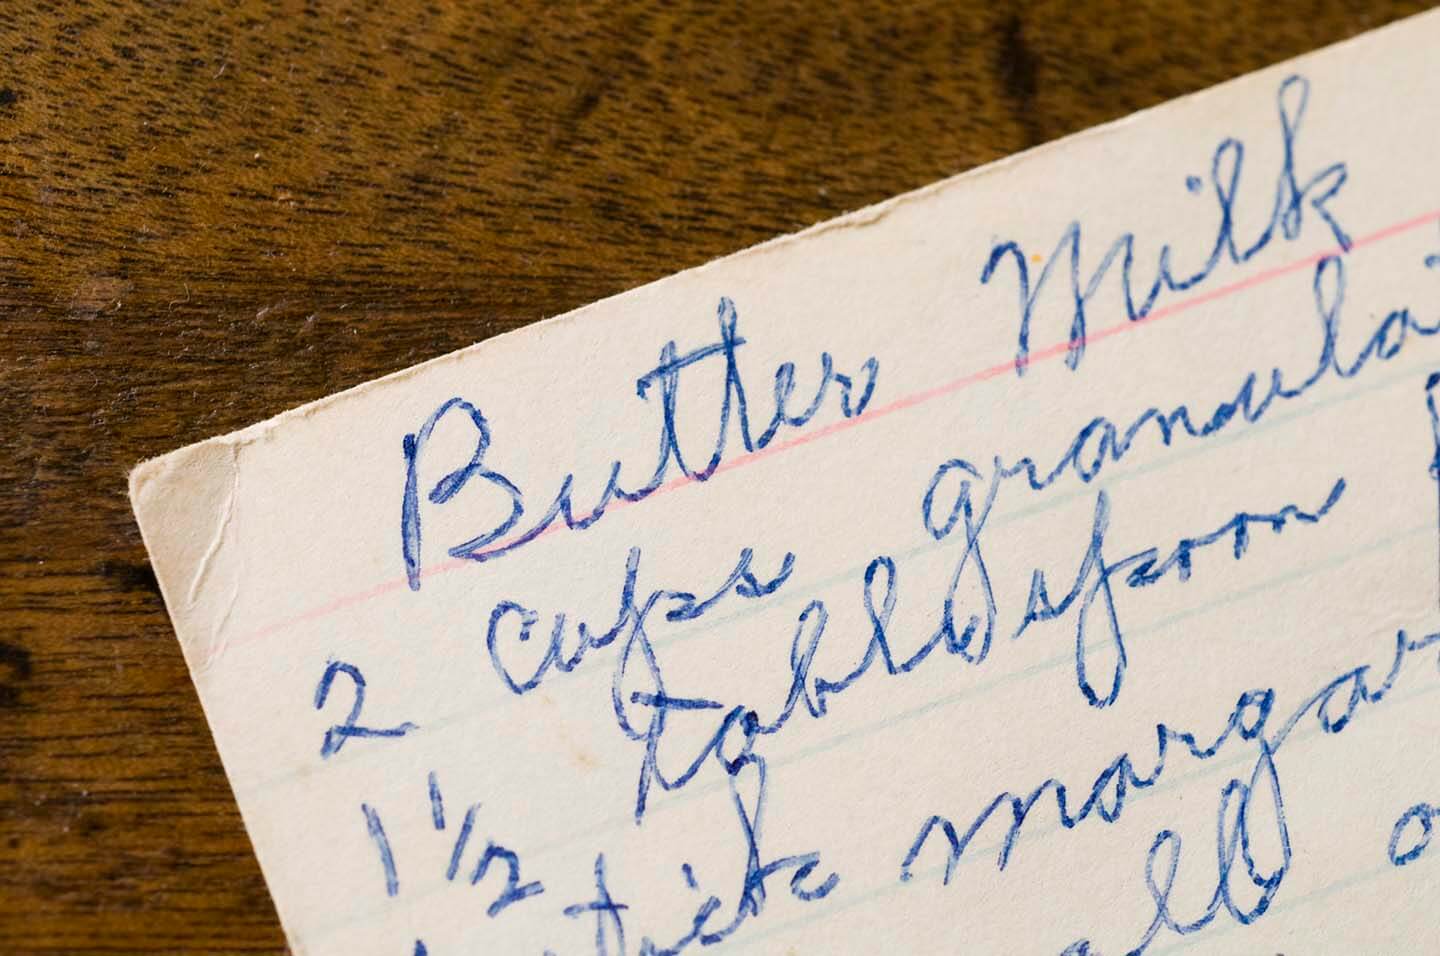 Butter Milk
2 cups granula
1 1/2 tablespoon
stick margar
all